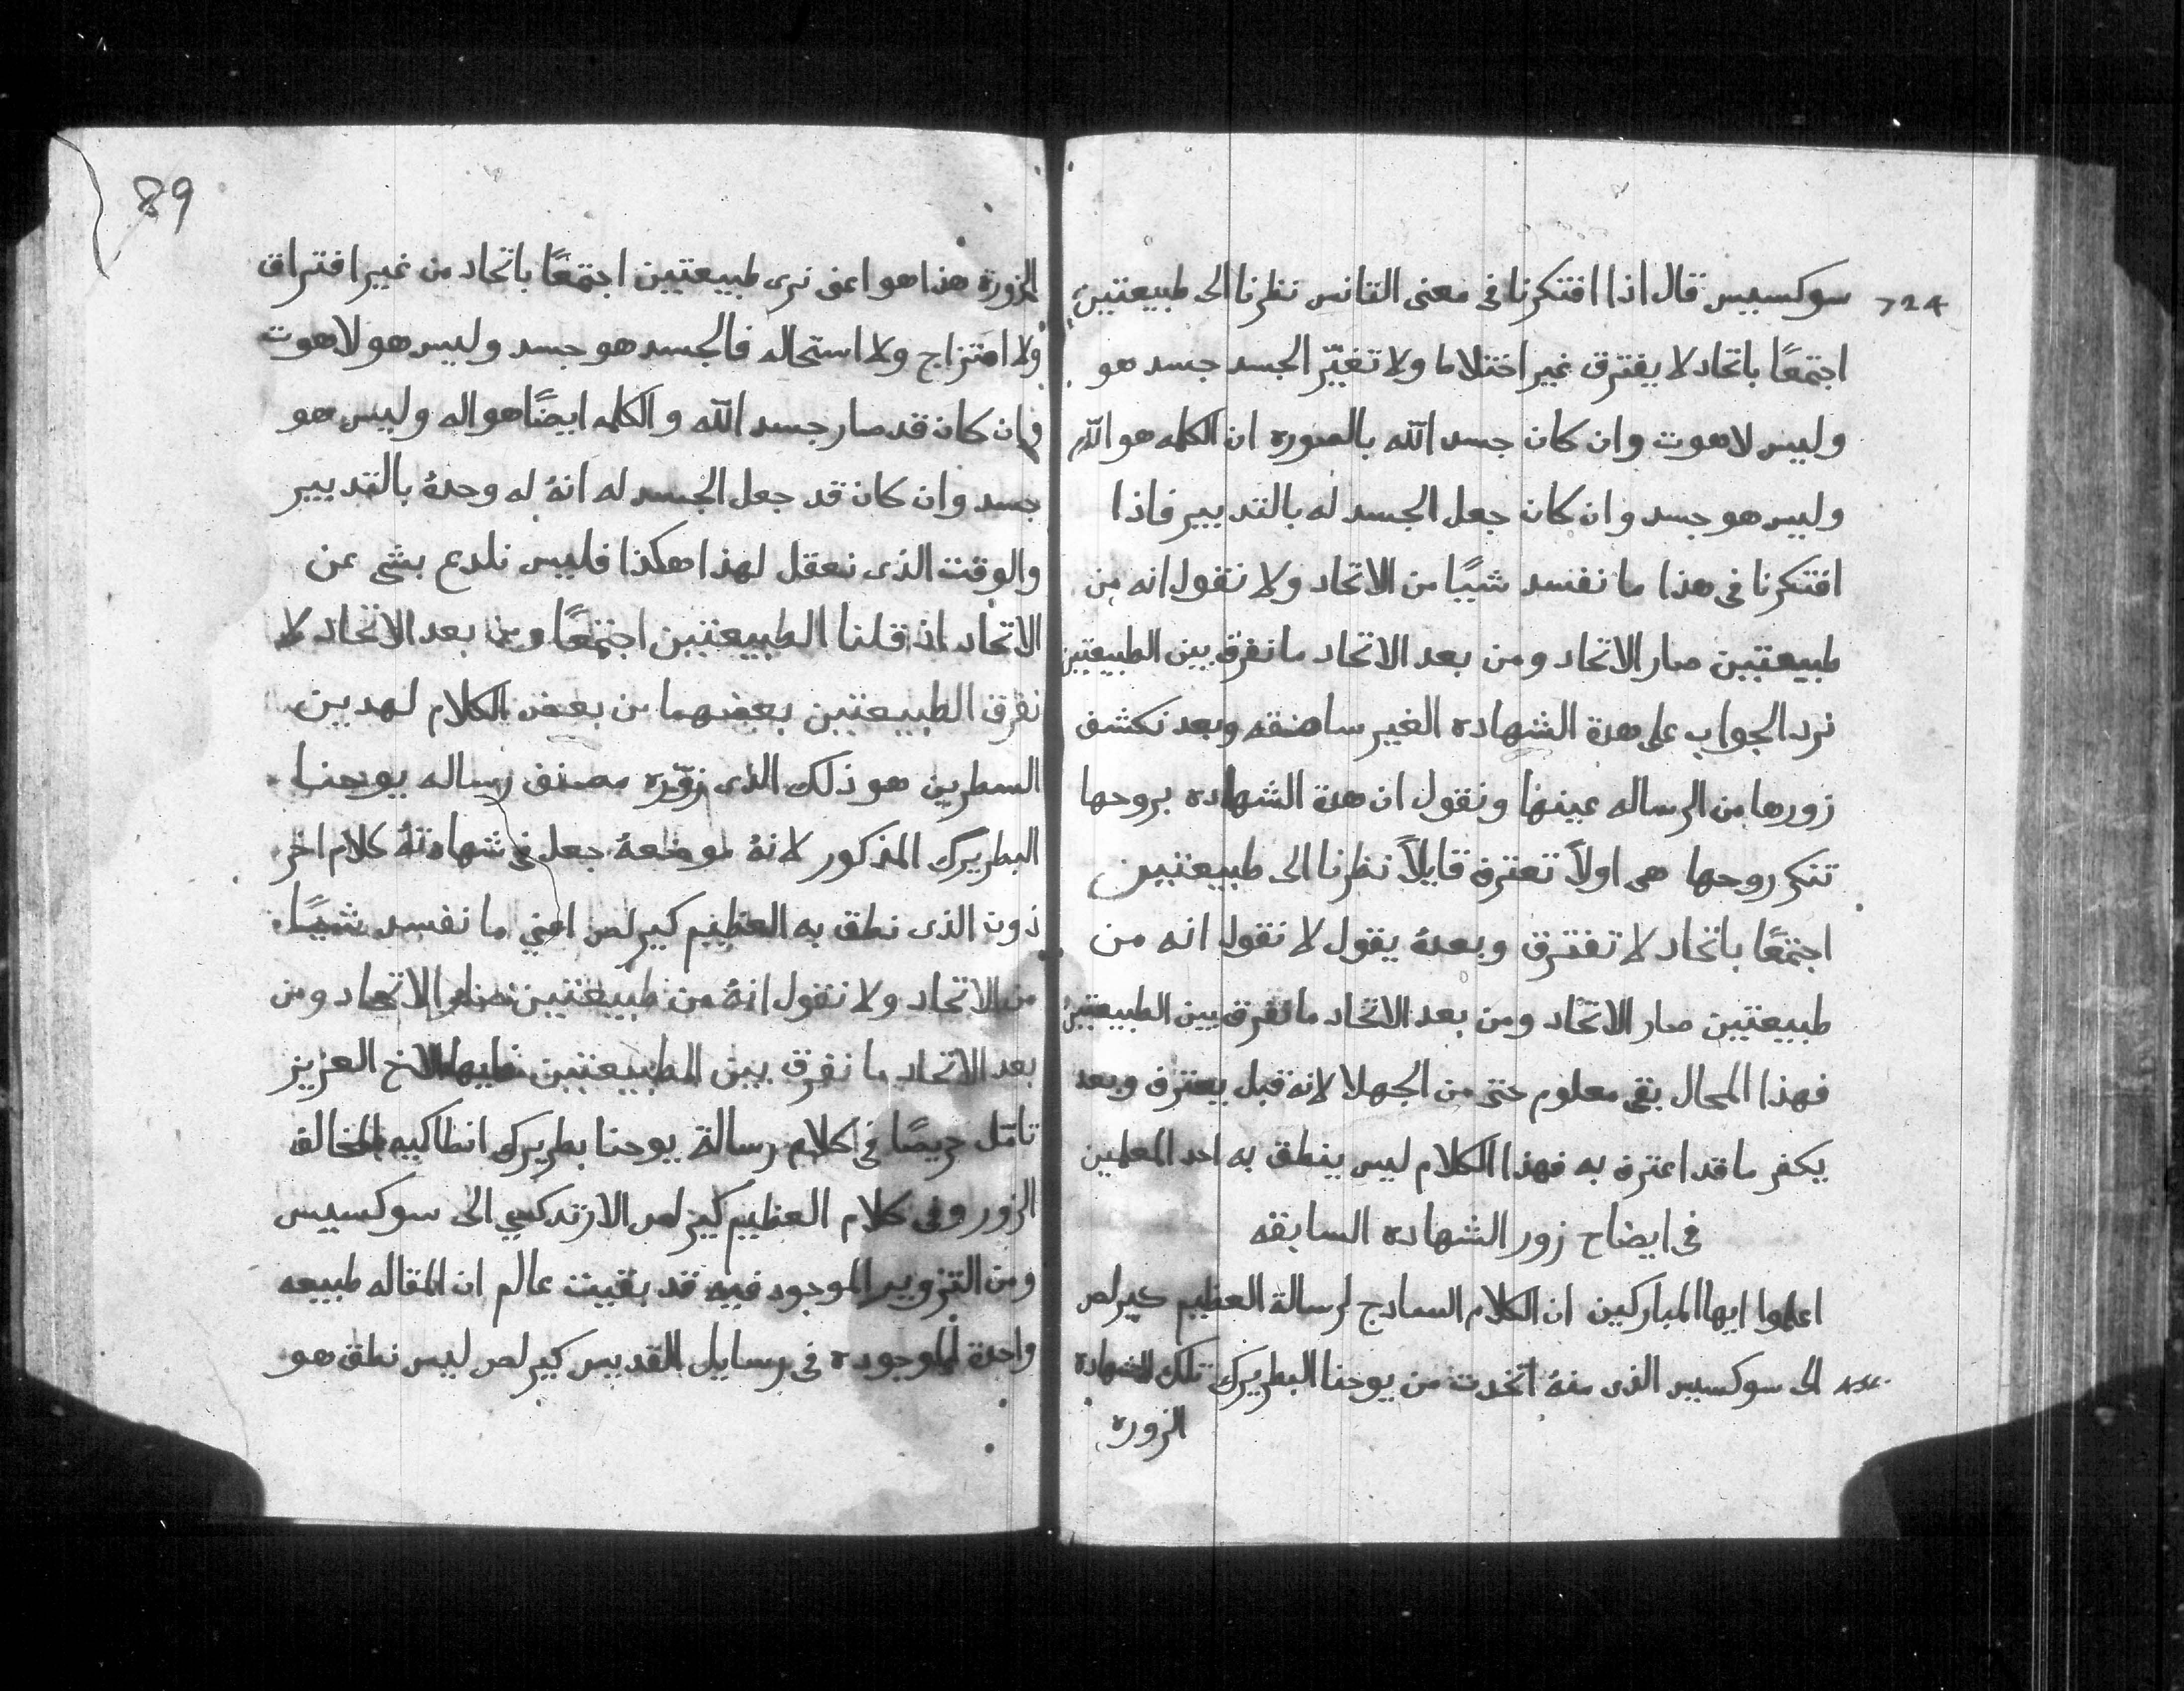 سوكسيس قال اذا افتكرنا فى معنى التانس نظرنا الى طبيعتين
اجتمعًا باتحاد لا يفترق غير اختلاط ولا تغيّر الجسد جسد هو
وليس لاهوت وان كان جسد الله بالصوره ان الكلمه هو الله
وليس هو جسد وان كان جعل الجسد له بالتدبير فاذا
افتكرنا فى هذا ما نفسد شيًا من الاتحاد ولا نقول انه من
طبيعتين صار الاتحاد ومن بعد الاتحاد ما نفرق بين الطبيعتين
نرد الجواب على هدة الشهاده الغير وبعد نكشف
زورها من الرساله عينها ونقول ان هدة الشهاده بروحها
تنكر روحها هى اولاً تعترف قايلاً نظرنا الى طبيعتين
اجتمعًا باتحاد لا تفترق وبعدهُ يقول لا نقول انه من
طبيعتين صار الاتحاد ومن بعد الاتحاد ما نفرق بين الطبيعتين
فهذا المحال بقى معلوم حتى من الجهلا لانه قبل يعترف وبعد
يكفر ما قد اعترف به فهذا الكلام ليس ينطق به احد المعلمين
فى ايضاح زور الشهاده السابقه
اعلموا ايها المباركين ان الكلام السادج لرسالة العظيم كيرلص
الى سوكسيس الذى منهُ اتخدت من يوحنا البطريرك تلك الشهادة
الزوره
89
المزورة هذا هو اعنى نرى طبيعتين اجتمعًا باتحاد من غير افتراق
ولا امتزاج ولا استحاله فالجسد هو جسد وليس هو لاهوت
وان كان قد صار جسد الله والكلمه ايضًا هو اله وليس هو
جسد وان كان قد جعل الجسد له انهُ له وحدهُ بالتدبير
والوقت الذى نعقل لهذا هكذا فليس نلدع بشى عن
الاتحاد اذ قلنا الطبيعتين اجتمعًا ومن بعد الاتحاد لا
نفرق الطبيعتين بعضهما من بعض الكلام لهدين
السطرين هو ذلك الذى زوّره مصنف رساله يوحنا
البطريرك المذكور لانهُ موضعهُ جعل فى شهادتهُ كلام اخر
دون الذى نطق به العظيم كيرلص اعني ما نفسد شيًا
من الاتحاد ولا نقول انهُ من طبيعتين صار الاتحاد ومن
بعد الاتحاد ما نفرق بين الطبيعتين فايها الاخ العزيز
تامّل حريصًا فى كلام رسالة يوحنا بطريرك انطاكيه المخالف
الزور وفى كلام العظيم كيرلص الارتدكسي الى سوكسيس
ومن التزوير الموجود فيه قد بقيت عالم ان المقاله طبيعه
واحدة الموجوده فى رسايل القديس كيرلص ليس نطق هو